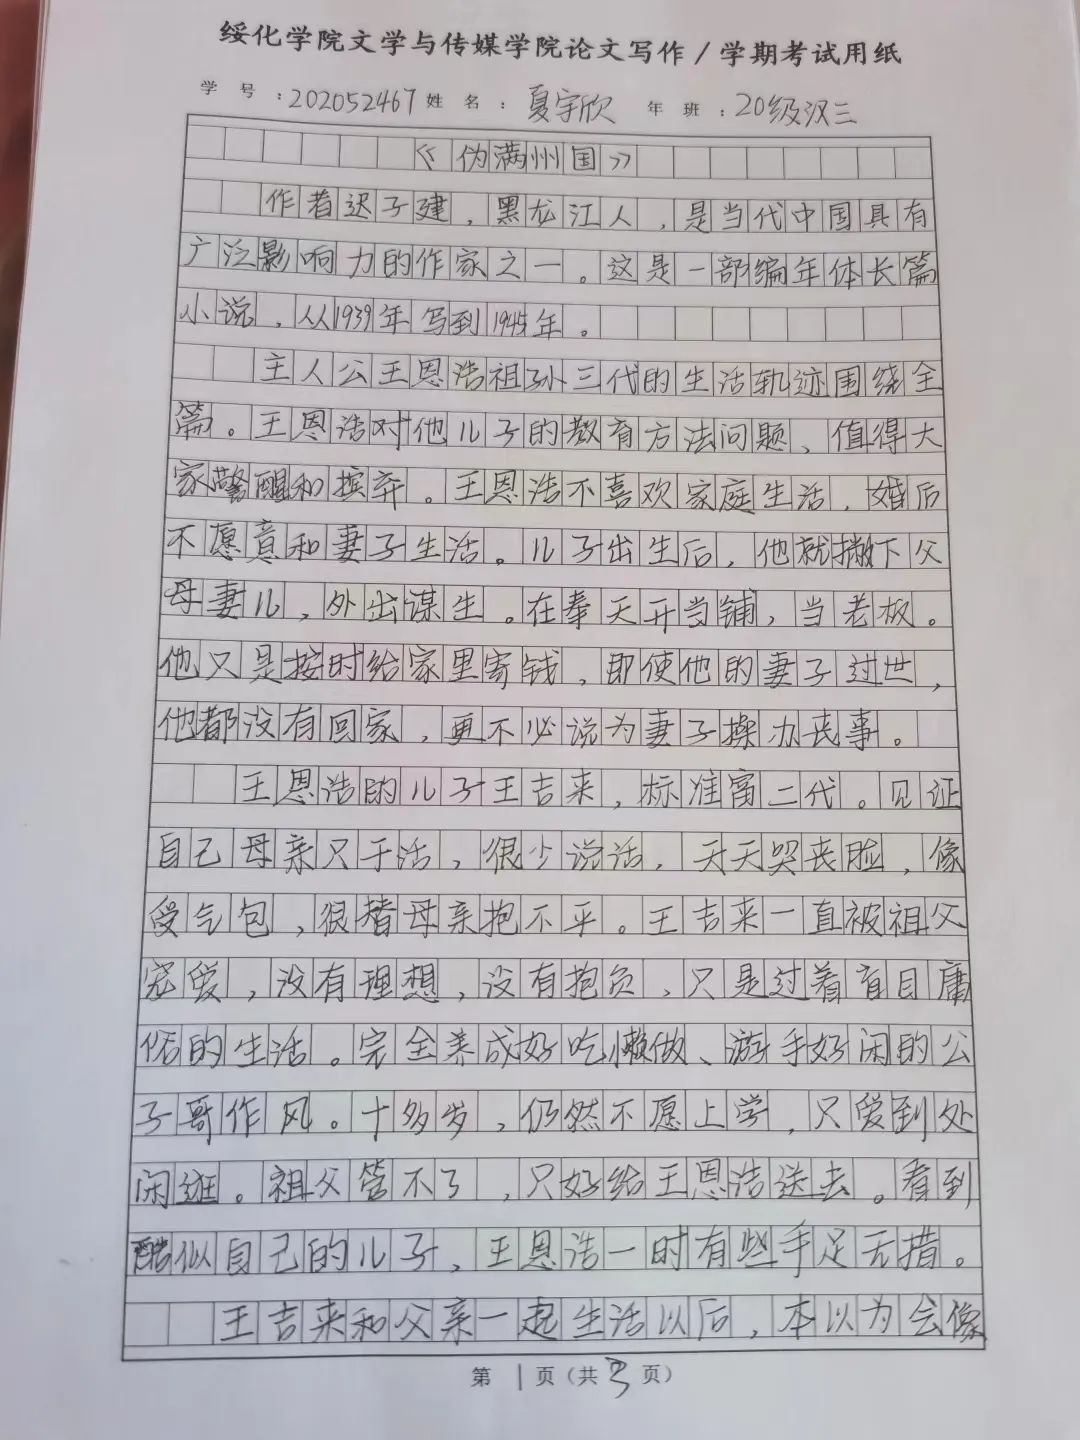 绥化学院文学与传媒学院论文写作/学期考试用纸
学 号：202052467 姓 名：夏宇欣 年 班：20级汉三
《伪满州国》
作者迟子建，黑龙江人，是当代中国具有
广泛影响力的作家之一。这是一部编年体长篇
小说，从1939年写到1945年。
主人公王恩浩祖孙三代的生活轨迹围绕全
篇。王恩浩对他儿子的教育方法问题、值得大
家警醒和摈弃。王恩浩不喜欢家庭生活，婚后
不愿意和妻子生活。儿子出生后，他就撇下父
母妻儿，外出谋生。在奉天开当铺，当老板。
他只是按时给家里寄钱，即使他的妻子过世，
他都没有回家，更不必说为妻子操办丧事。
王恩浩的儿子王吉来，标准富二代。见证
自己母亲只干活，很少说话，天天哭丧脸，像
受气包，很替母亲抱不平。王吉来一直被祖父
宠爱，没有理想，没有抱负，只是过着盲目庸
俗的生活。完全养成好吃懒做、游手好闲的公
子哥作风。十多岁，仍然不愿上学，只爱到处
闲逛。祖父管不了，只好给王恩浩送去。看到
酷似自己的儿子，王恩浩一时有些手足无措。
王吉来和父亲一起生活以后，本以为会像
第 1 页（共 3 页）